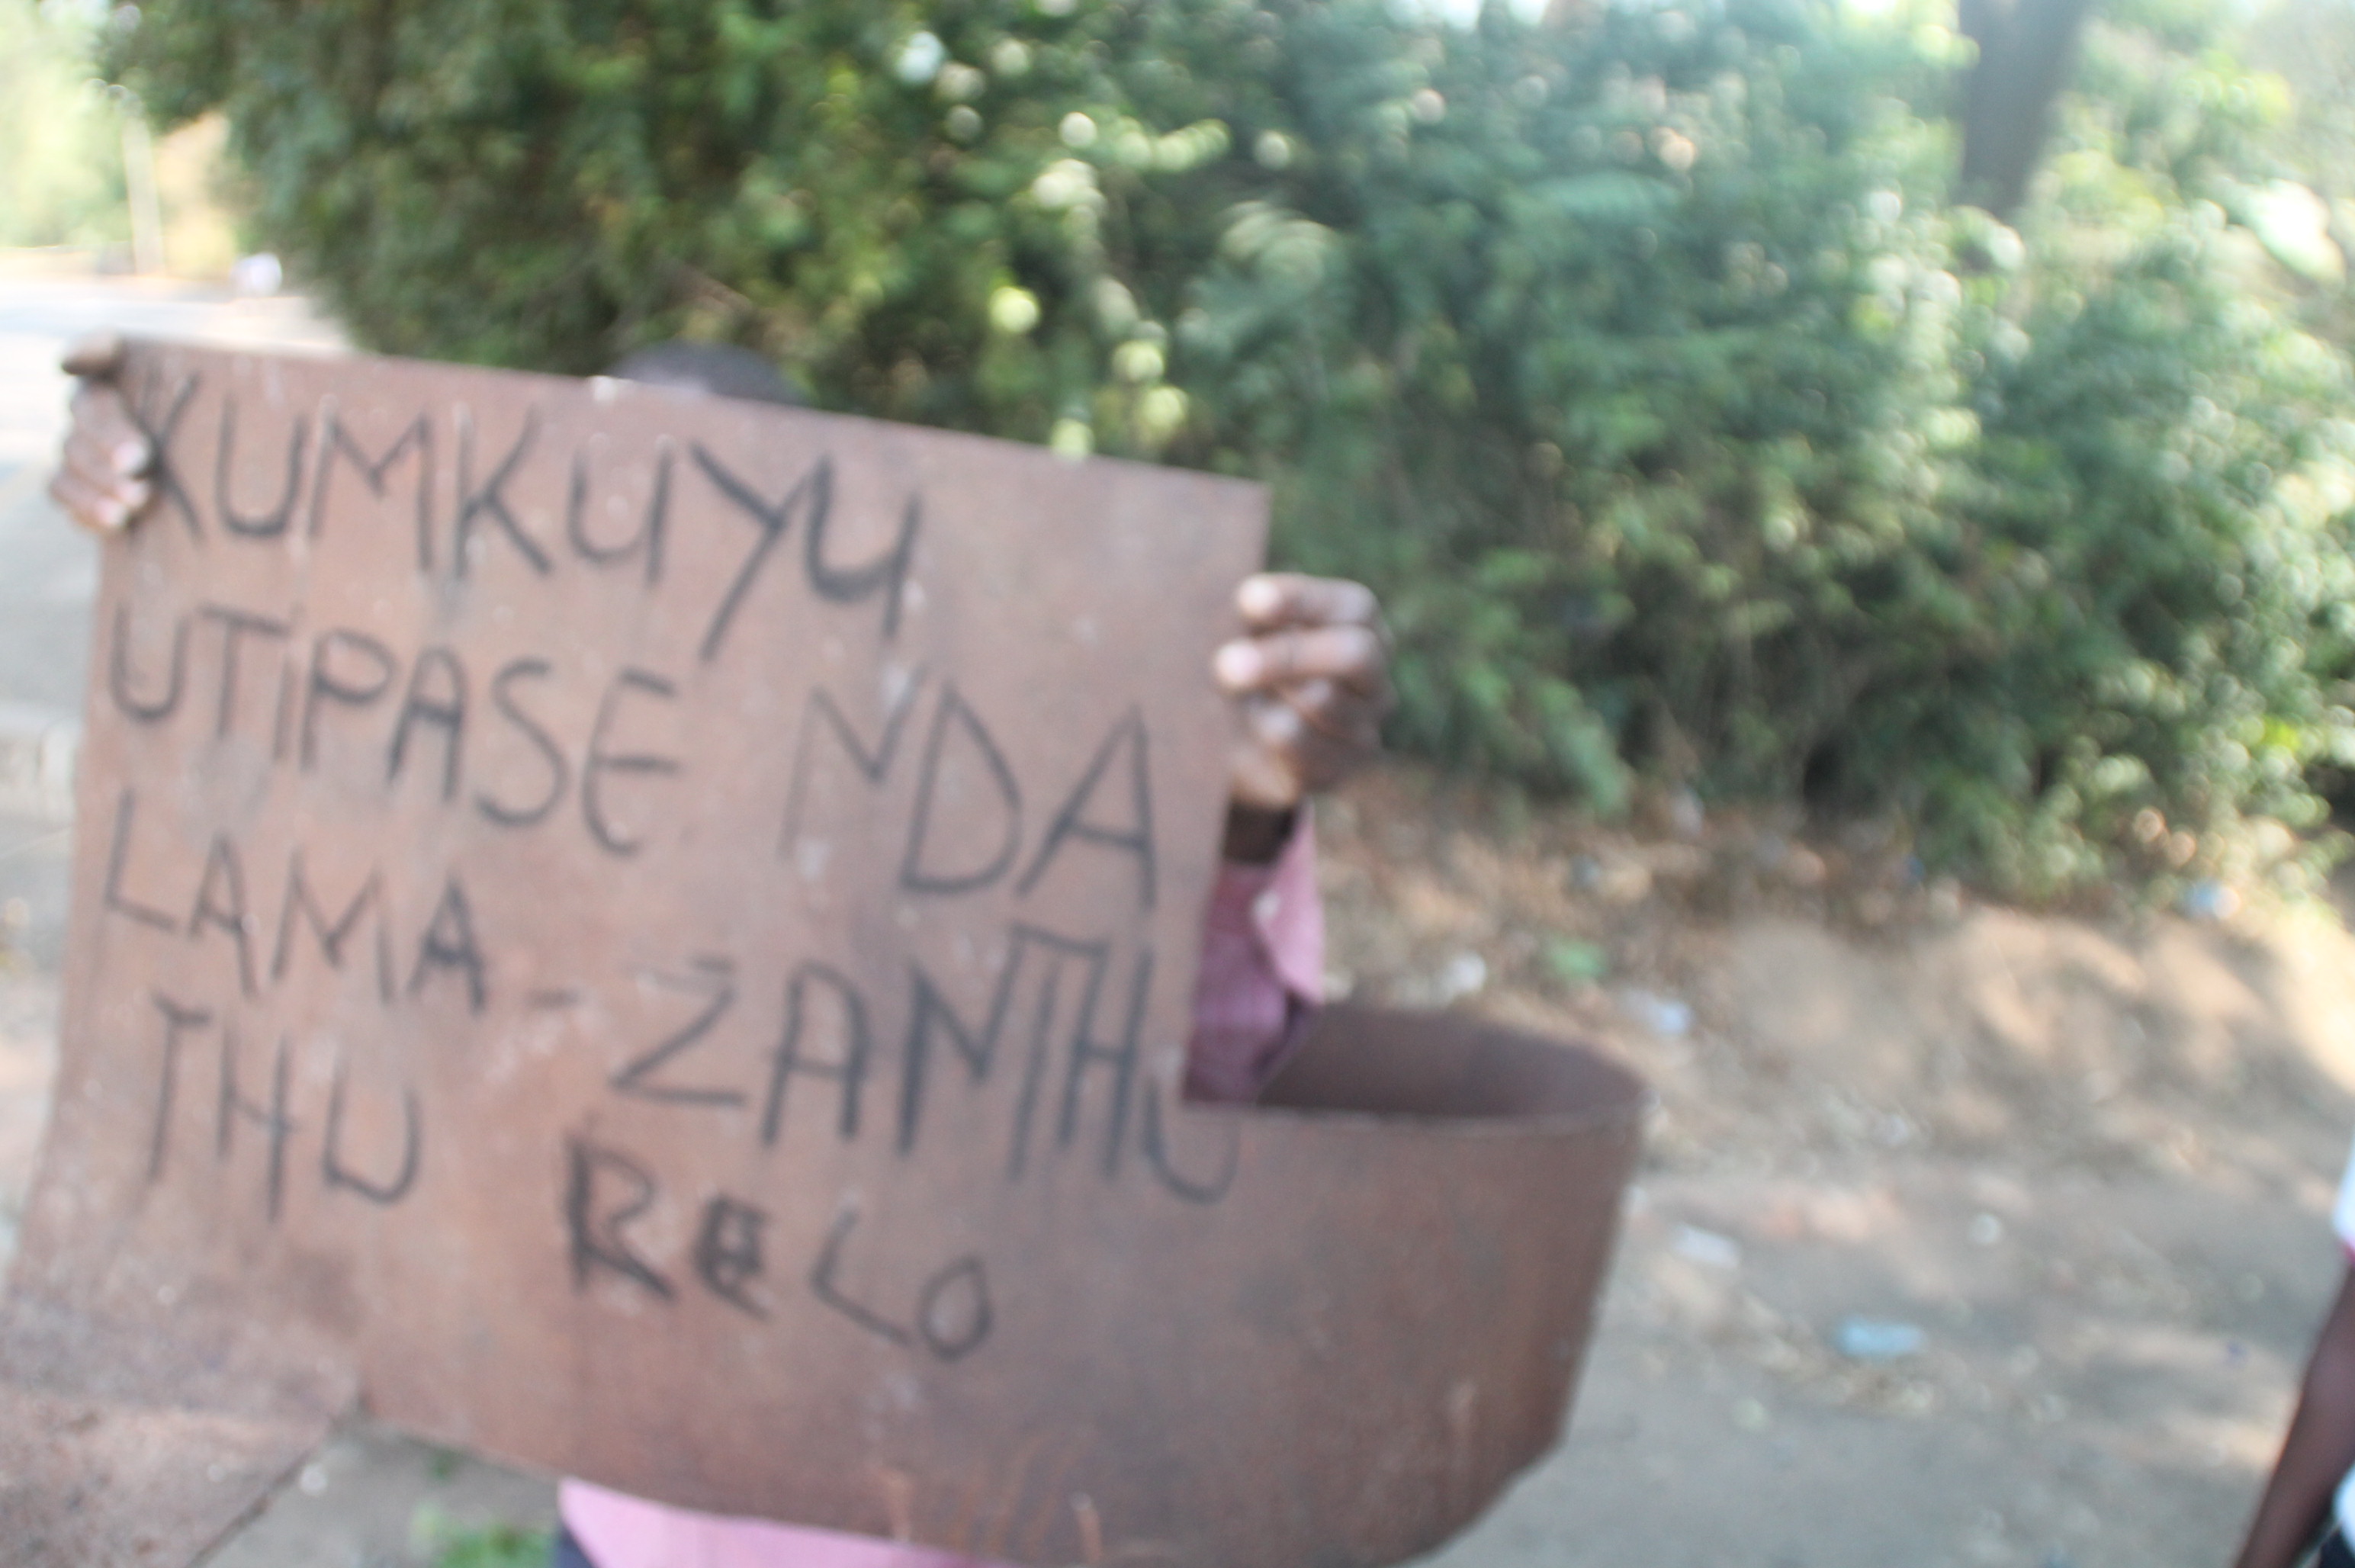 KUMKUYU
UTiPASE NDA
LAMA - ZANTHU
THU RELO